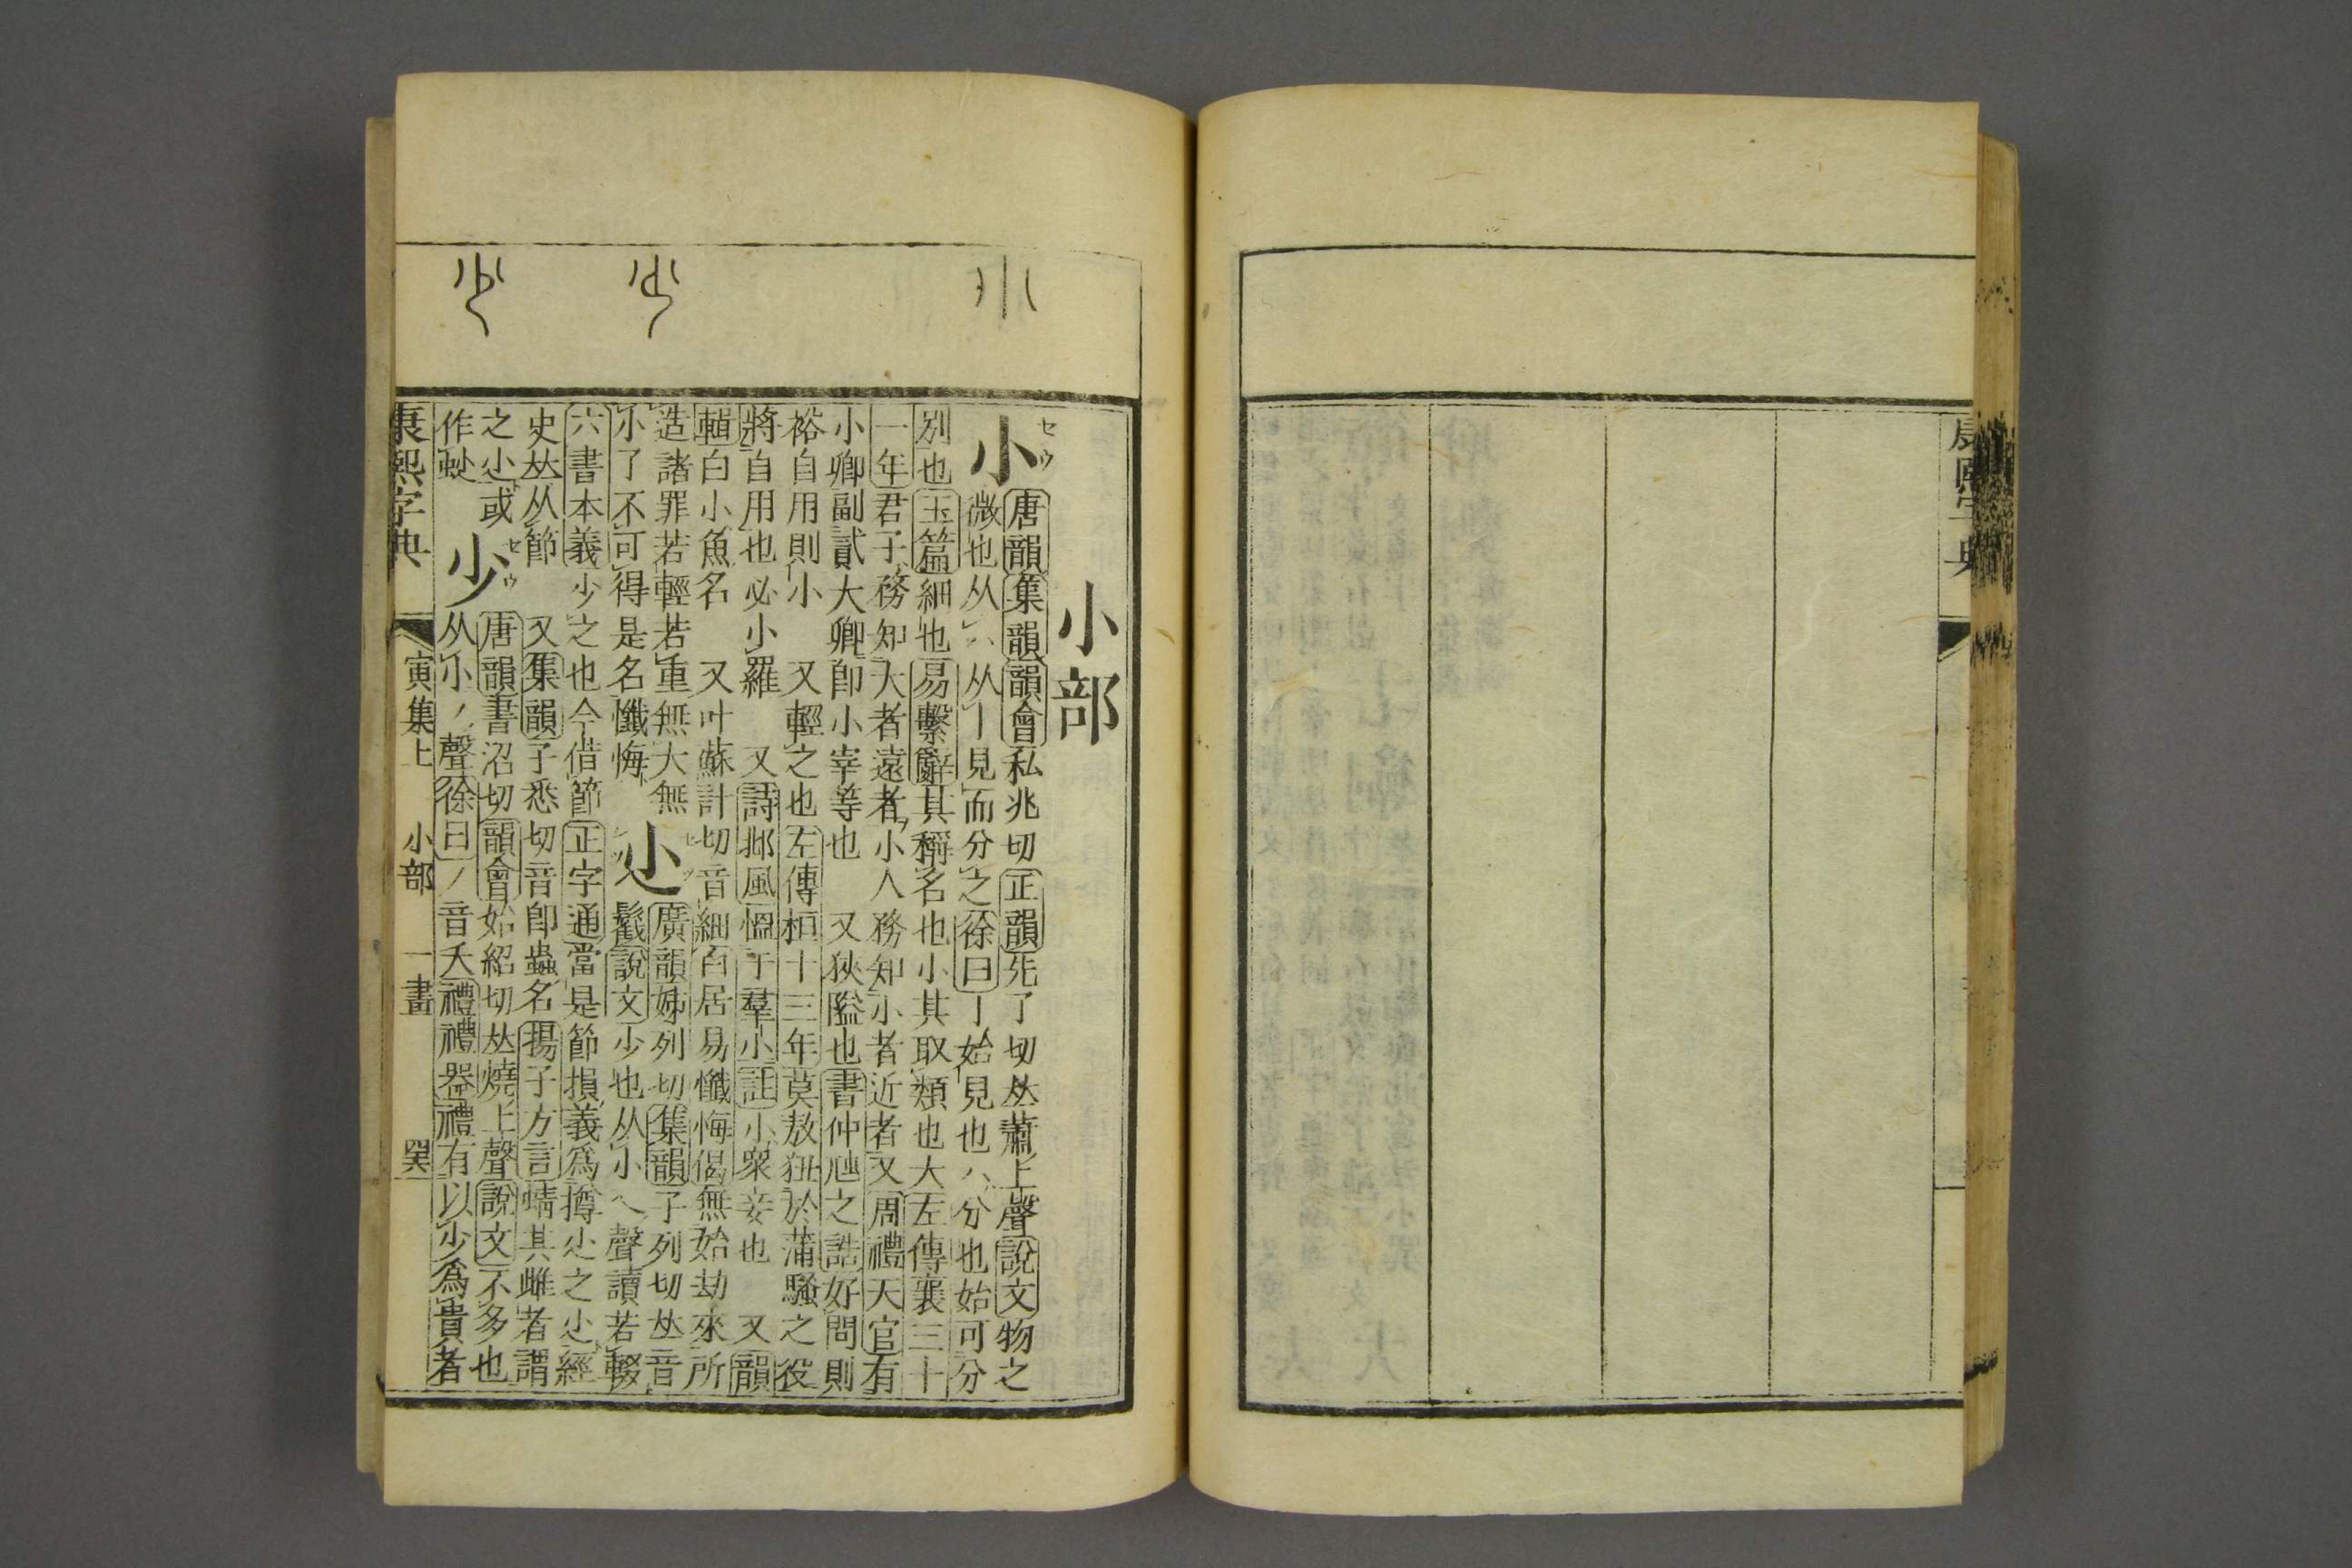 康熙字典
小部
小 セウ
唐韻集韻韻會私兆切正韻先了切𠀤蕭上聲說文物之
微也从八从丨見而分之徐曰丨始見也八分也始可分
別也玉篇細也易繫辭其稱名也小其取類也大左傳襄三十
一年君子務知大者遠者小人務知小者近者又周禮天官有
小卿副貳大卿卽小宰等也 又狹隘也書仲虺之誥好問則
裕自用則小 又輕之也左傳桓十三年莫敖狃於蒲騷之役
將自用也必小羅 又詩邶風慍于羣小註小衆妾也 又韻
輯白小魚名 又叶蘇計切音細白居易懺悔偈無始劫來所
造諸罪若輕若重無大無
小了不可得是名懺悔
廣韻姊列切集韻子列切𠀤音
鬛說文少也从小乀聲讀若輟
六書本義少之也今借節正字通當是節損義爲撙⺌之⺌經
史𠀤从節 又集韻子悉切音卽蟲名揚子方言蜻其雌者謂
之⺌或
作𧉀
少 セウ
唐韻書沼切韻會始紹切𠀤燒上聲說文不多也
从小丿聲徐曰丿音夭禮禮器禮有以少爲貴者
康熙字典 寅集上 小部 一畫